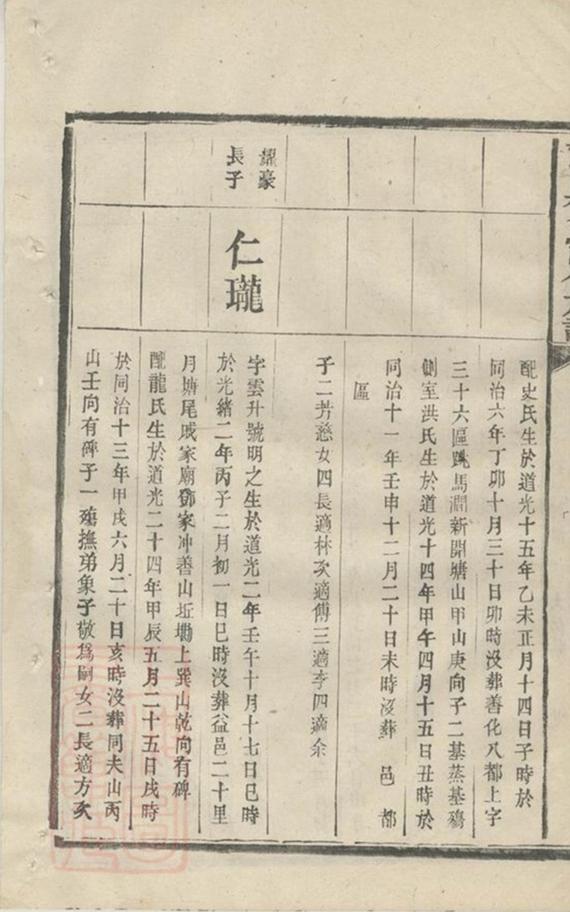 配史氏生於道光十五年乙未正月十四日子時於
同治六年丁卯十月三十日卯時沒葬善化八都上字
三十六區跳馬澗新開塘山甲山庚向子二基蒸基殤
側室洪氏生於道光十四年甲午四月十五日丑時於
同治十一年壬申十二月二十日未時沒葬 邑 都
區
子二芳慈女四長適林次適傅三適李四適余
豪
長子
仁瓏
字雲升號明之生於道光二年壬午十月十七日巳時
於光緒二年丙子二月初一日巳時沒葬益邑二十里
月塘尾戚家廟鄧家冲善山坵墈上巽山乾向有碑
配龍氏生於道光二十四年甲辰五月二十五日戌時
於同治十三年甲戌六月二十日亥時沒葬同夫山丙
山壬向有碑子一殤撫弟象子敬為嗣女二長適方次